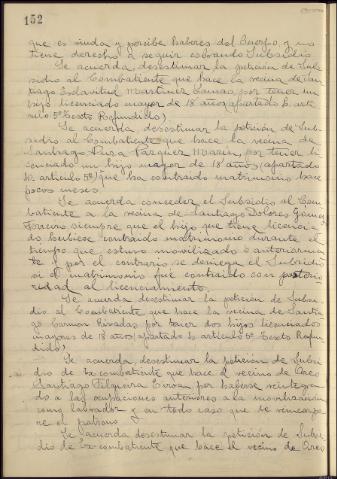 152
que es viuda y percibe haberes del Cuerpo y no
tiene derecho a seguir cobrando Subsidio
Se acuerda, desestimar la petición de Sub-
sidio al Combatiente que hace la vecina de San-
tiago Esclavitud Martínez Lamas, por tener un
hijo licenciado mayor de 18 años (apartado artic-
ulo 5º Texto Refundido)
Se acuerda, desestimar la petición de Sub-
sidio al Combatiente que hace la vecina de
Santiago Vázquez por tener li-
cenciado un hijo mayor de 18 años (apartado
articulo 5º) que ha contraido matrimonio hace
pocos meses.
Se acuerda conceder el Subsidio al Com-
batiente a la vecina de Santiago Dolores Gómez
siempre que el hijo que tiene licencia-
do hubiese contraido matrimonio durante el
tiempo que estuvo movilizado o anteriormen-
te y por el contrario se deniega el Subsidio
si el matrimonio fué contraido con posterio-
ridad al licenciamiento.
Se acuerda desestimar la petición de Subsi-
dio al Combatiente que hace la vecina de Santia-
go Carmen Rivadas por tener dos hijos licenciados
mayores de 18 años (apartado articulo 5º Texto Refun-
dido)
Se acuerda, desestimar la petición de Subsi-
dio de Ex-combatiente que hace el vecino de
Santiago Filgueira por haberse reintegra-
do a las ocupaciones anteriores a la movilización
como labrador y en todo caso que le reincorpo-
re el patrono
Se acuerda desestimar la petición de Subsi-
dio de Ex-combatiente que hace el vecino de